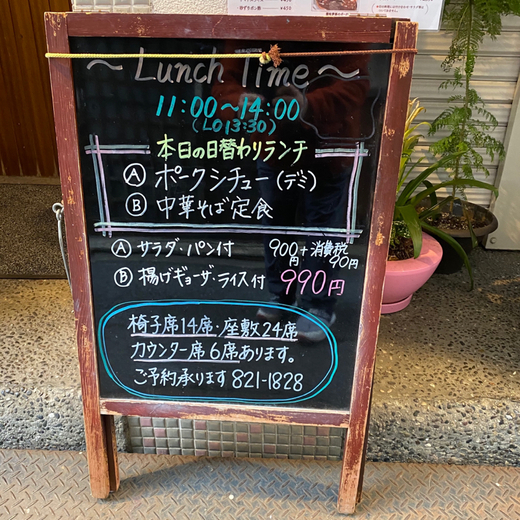 ～Lunch Time～
11:00～14:00
(LO13:30)
本日の日替わりランチ
Ⓐ ポークシチュー(デミ)
Ⓑ 中華そば定食
Ⓐ サラダ・パン付 900円+消費税90円
Ⓑ 揚げギョーザ・ライス付 990円
椅子席14席・座敷24席
カウンター席6席あります。
ご予約承ります 821-1828